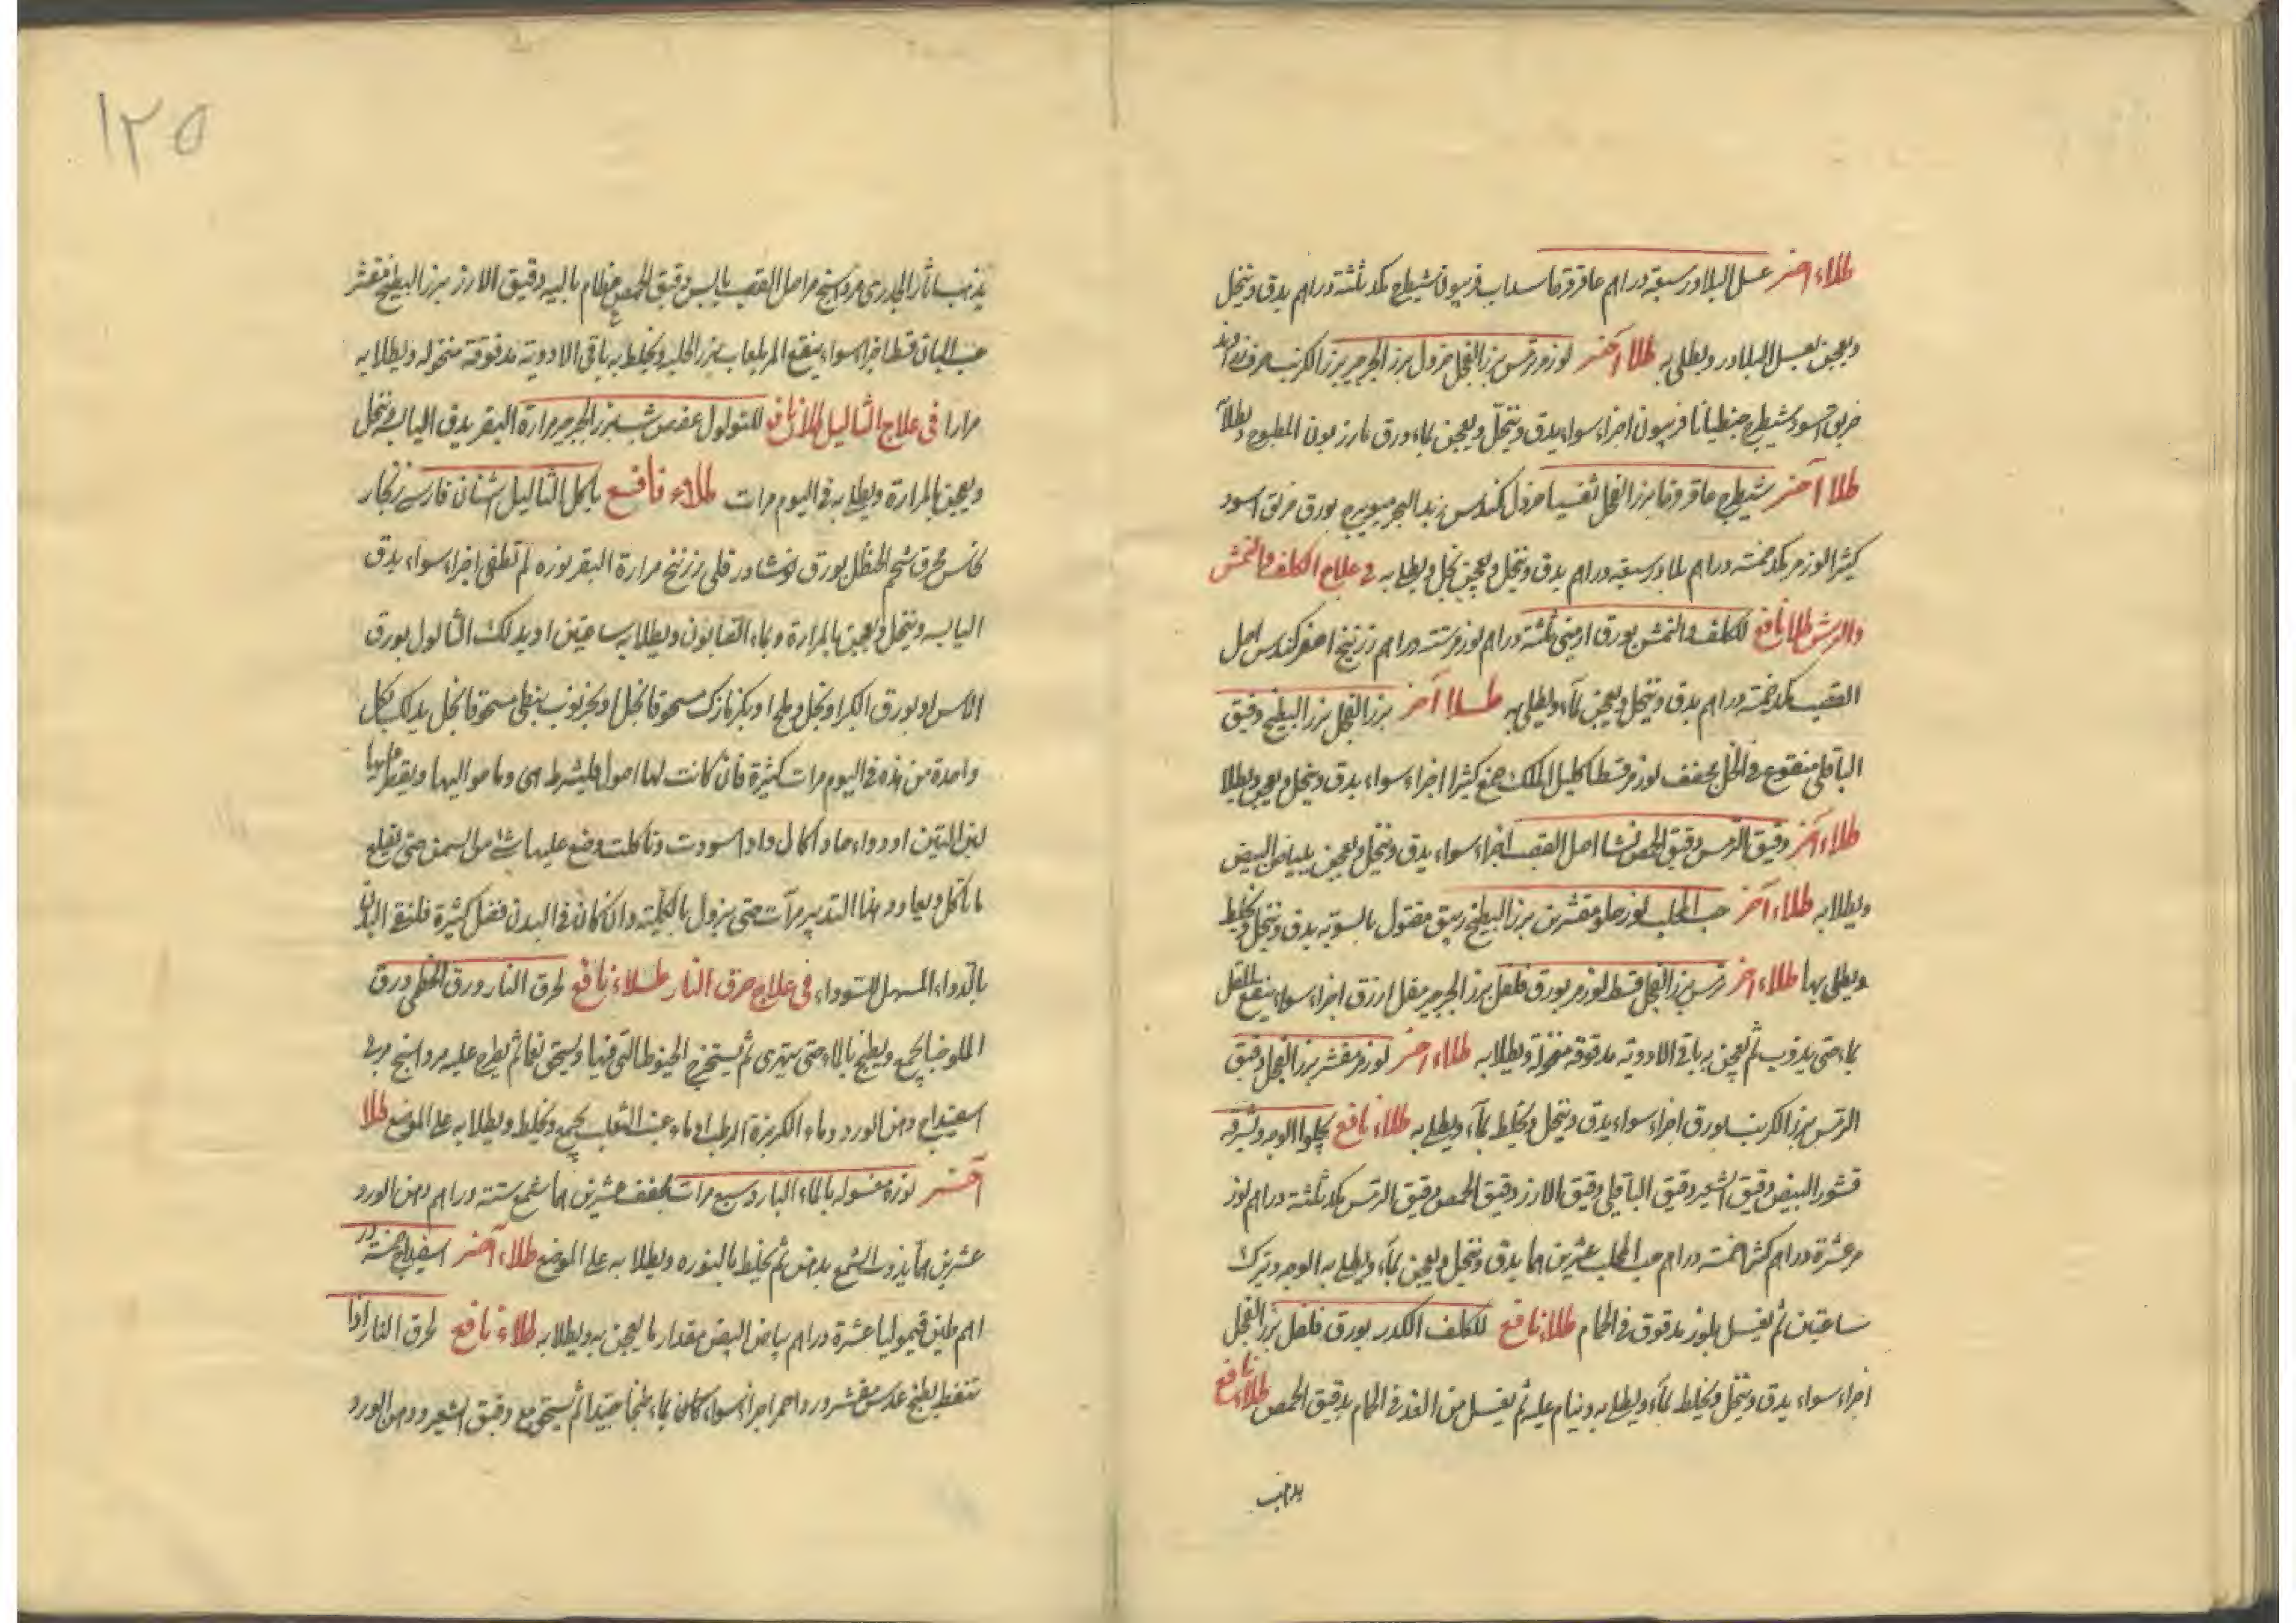 طلاء اخر عسل البلادر سبعة دراهم عاقرقرحا سداب فربيون شيطرج مكد ثلثة دراهم يدق وينخل
ويعجن بعسل البلادر ويطلى به طلا آخر لوز مر ترمس بزر الفجل خردل بزر الجرجير بزر الكرنب
خربق اسود شيطرج جنطيانا فربيون اجزاء سواء يدق وينخل ويعجن بماء ورق مازريون المطبوخ ويطلا
طلا آخر شيطرج عاقرقرحا بزر الفجل ثفسيا خردل كندس زبد البحر ميويزج بورق خربق اسود
كثيرا لوز مر مكد خمسة دراهم بلادر سبعة دراهم يدق وينخل ويعجن بخل ويطلى به في علاج الكلف والنمش
والبرش طلا نافع للكلف والنمش بورق ارمنى ثلثة دراهم لوز مر ستة دراهم زرنيخ اصفر كندس اصل
القصب مكد خمسة دراهم يدق وينخل ويعجن بماء ويطلى به طلاا آخر بزر الفجل بزر البطيخ دقيق
الباقلى منقوع في الخل مجفف لوز مر قسط اكليل الملك صمغ كثيرا اجزاء سواء يدق وينخل ويعجن ويطلا
طلاء آخر دقيق الترمس دقيق الحمص نشا اصل القصب اجزاء سواء يدق وينخل ويعجن ببياض البيض
ويطلا به طلاء آخر حب المحلب لوز حلو مقشرين بزر البطيخ زيبق مقتول بالسوية يدق وينخل ويخلط
ويطلى بها طلاء اخر ترمس بزر الفجل قسط لوز مر بورق فلفل بزر الجرجير مقل ازرق اجزاء سواء ينقع المقل
بماء حتى يذوب ثم يعجن به باقى الادوية مدقوقة منخولة ويطلا به طلاء اخر لوز مر مقشر بزر الفجل دقيق
الترمس بزر الكرنب بورق اجزاء سواء يدق وينخل ويخلط بماء ويطلى به طلاء نافع يجلوا الوجه ويشرقه
قشور البيض دقيق الشعير دقيق الباقلى دقيق الارز دقيق الحمص دقيق الترمس مكد ثلثة دراهم لوز
مر عشرة دراهم كثيرا خمسة دراهم حب المحلب عشرين درهما يدق وينخل ويعجن بماء ويطلى به الوجه ويترك
ساعتين ثم يغسل بلوز مدقوق في الحمام طلاء نافع للكلف الكدر بورق فلفل بزر الفجل
اجزاء سواء يدق وينخل ويخلط بماء ويطلى به وينام عليه ثم يغسل من الغد في الحمام بدقيق الحمص طلاء نافع
يذهب
١٢٥
يذهب باثار الجدرى مرداسنج مر اصل القصب يابس دقيق الحمص عظام باليه دقيق الارز بزر البطيخ مقشر
حب البان قسط اجزا سواء ينقع المر بلعاب بزر الحلبه ويخلط به باقى الادوية مدقوقة منخوله ويطلا به
مرارا في علاج الثاليل طلا نافع للثولول عفص شب بزر الجرجير مرارة البقر يدق اليابس وينخل
ويعجن بالمرارة ويطلى به في اليوم مرات طلاء نافع ياكل الثاليل اشنان فارسى زنجار
نحاس محرق شحم الحنظل بورق نوشادر قلى زرنيخ مرارة البقر نوره لم تطفى اجزاء سواء يدق
اليابسه وينخل ويعجن بالمرارة وبماء الصابون ويطلا به ساعتين او يدلك الثالول بورق
الاس او بورق الكراو بخل وملح او بكزمازك مسحوقا بخل او بخرنوب نبطى مسحوقا بخل يدلك بكل
واحدة من هذه في اليوم مرات كثيرة فان كانت لها اصول فليشرط هى وما حواليها ويقطر عليها
لبن التين او دواء حاد اكال واذا اسودت وتاكلت وضع عليها شئ من السمن حتى يقلع
ما تاكل ويعاود هذا التدبير مرآت حتى يزول بالكلية وان كان في البدن فضل كثيرة فلينق البدن
بالدواء المسهل للسوداء في علاج حرق النار طلاء نافع لحرق النار ورق الخطمى ورق
الملوخيا يجمع ويطبخ بالماء حتى يتهرى ثم يستخرج الخيوط التى فيها ويسحق نعما ثم يطرح عليه مرداسنج مربى
اسفيداج دهن الورد وماء الكزبرة الرطب او ماء عنب الثعلب يجمع ويخلط ويطلا به على الموضع طلا
آخر نوزه مغسوله بالماء البارد سبع مرات مجفف عشرين درهما شمع ستة دراهم دهن الورد
عشرين درهما يذوب الشمع بدهن ثم يخلط بالنوره ويطلا به على الموضع طلاء آخر اسفيداج خمسة در
اهم طين قيموليا عشرة دراهم بياض البيض مقدار ما يعجن به ويطلا به طلاء نافع لحرق النار اذا
تنفط يطبخ عدس مقشر ورد احمر اجزاء سواء بماء طبخا جيدا ثم يسحق مع دقيق الشعير ودهن الورد